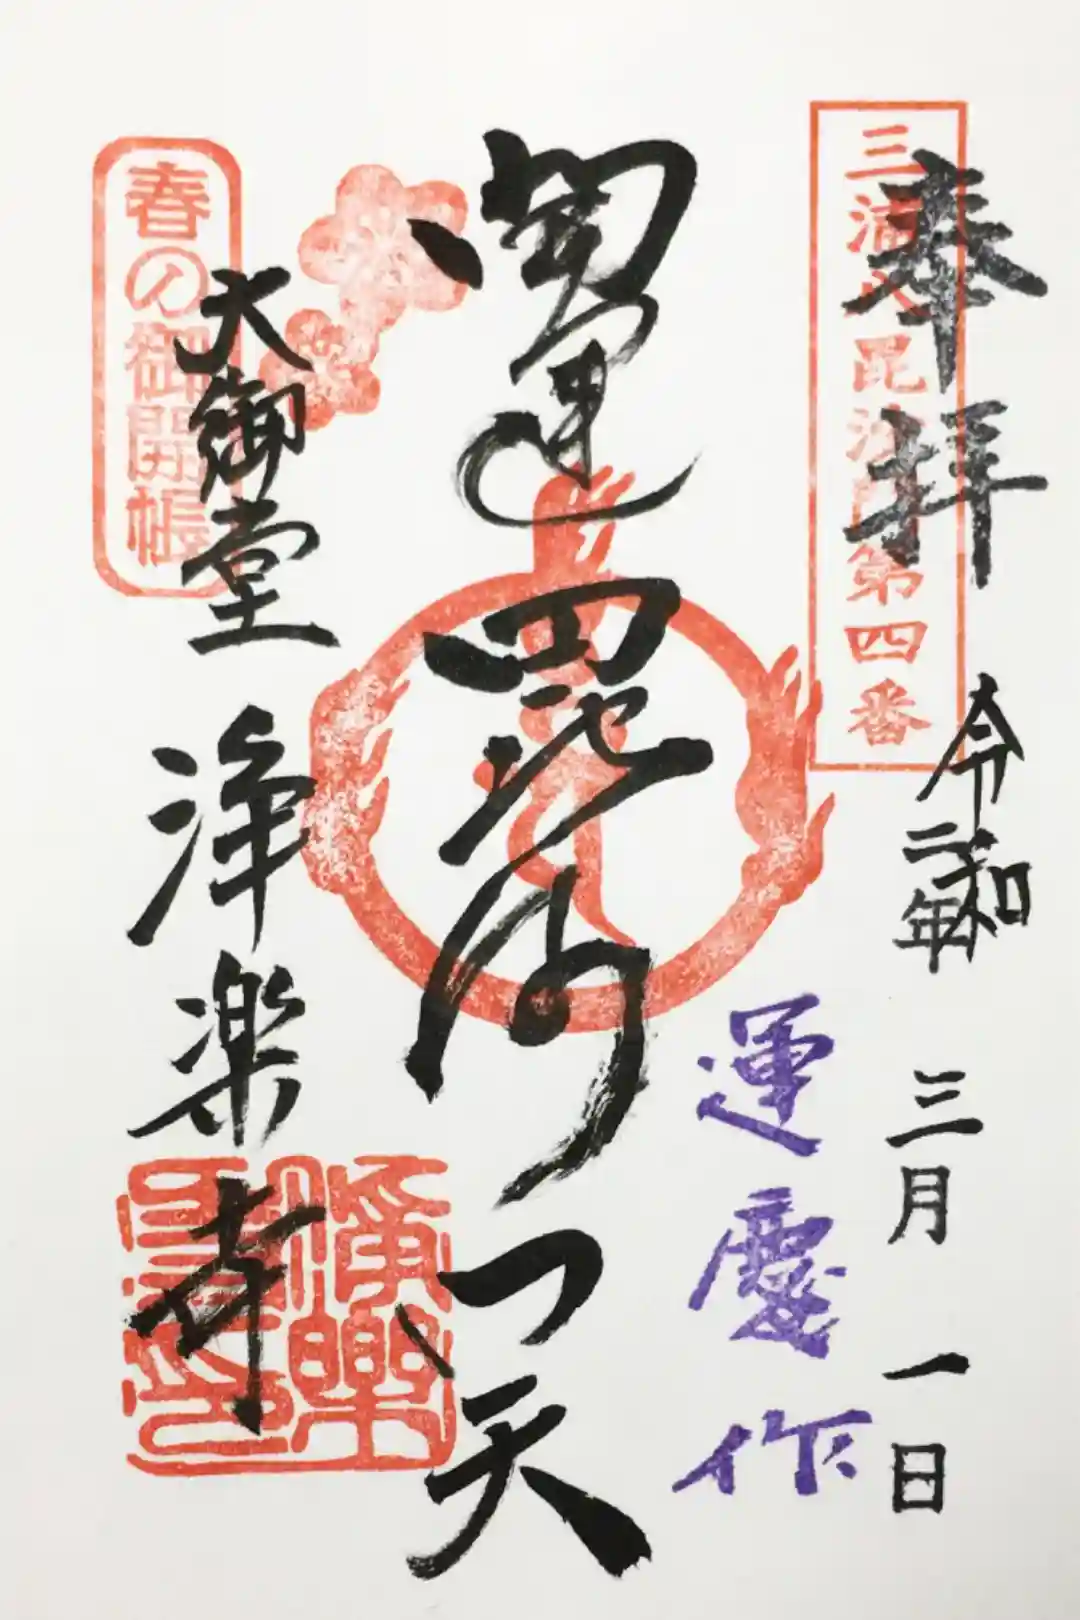 奉拝
三浦八毘沙門第四番
令和
二年
三月
一日
運慶作
開運
毘沙門天
春の御開帳
大御堂
浄楽寺